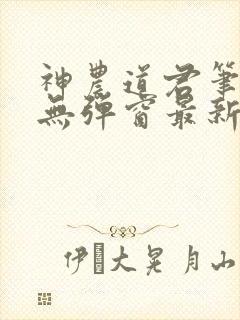 神農道君筆
無彈窗最新
伊大晃月山